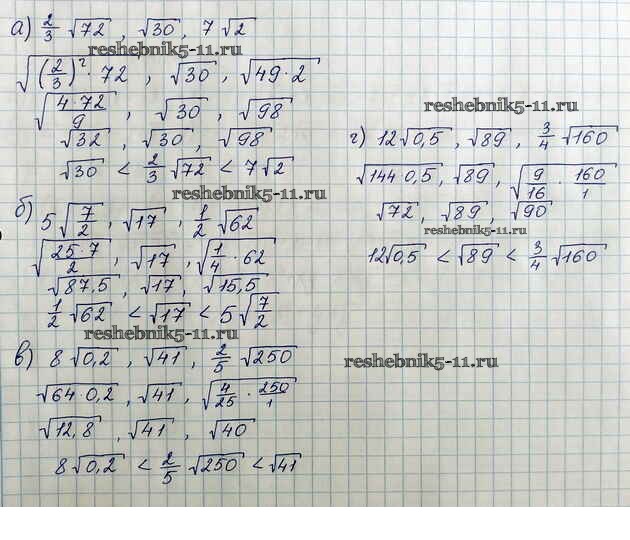 а) 2/3 √72, √30, 7√2
reshebnik5-11.ru
√((2/3)² · 72), √30, √(49·2)
√(4·72/9), √30, √98
√32, √30, √98
√30 < 2/3 √72 < 7√2
reshebnik5-11.ru
б) 5√(7/2), √17, 1/2 √62
√(25·7/2), √17, √(1/4 · 62)
√87,5, √17, √15,5
1/2 √62 < √17 < 5√(7/2)
reshebnik5-11.ru
в) 8√0,2, √41, 2/5 √250
√(64·0,2), √41, √(4/25 · 250/1)
√12,8, √41, √40
8√0,2 < 2/5 √250 < √41
reshebnik5-11.ru
г) 12√0,5, √89, 3/4 √160
√(144·0,5), √89, √(9/16 · 160/1)
√72, √89, √90
reshebnik5-11.ru
12√0,5 < √89 < 3/4 √160
reshebnik5-11.ru
reshebnik5-11.ru